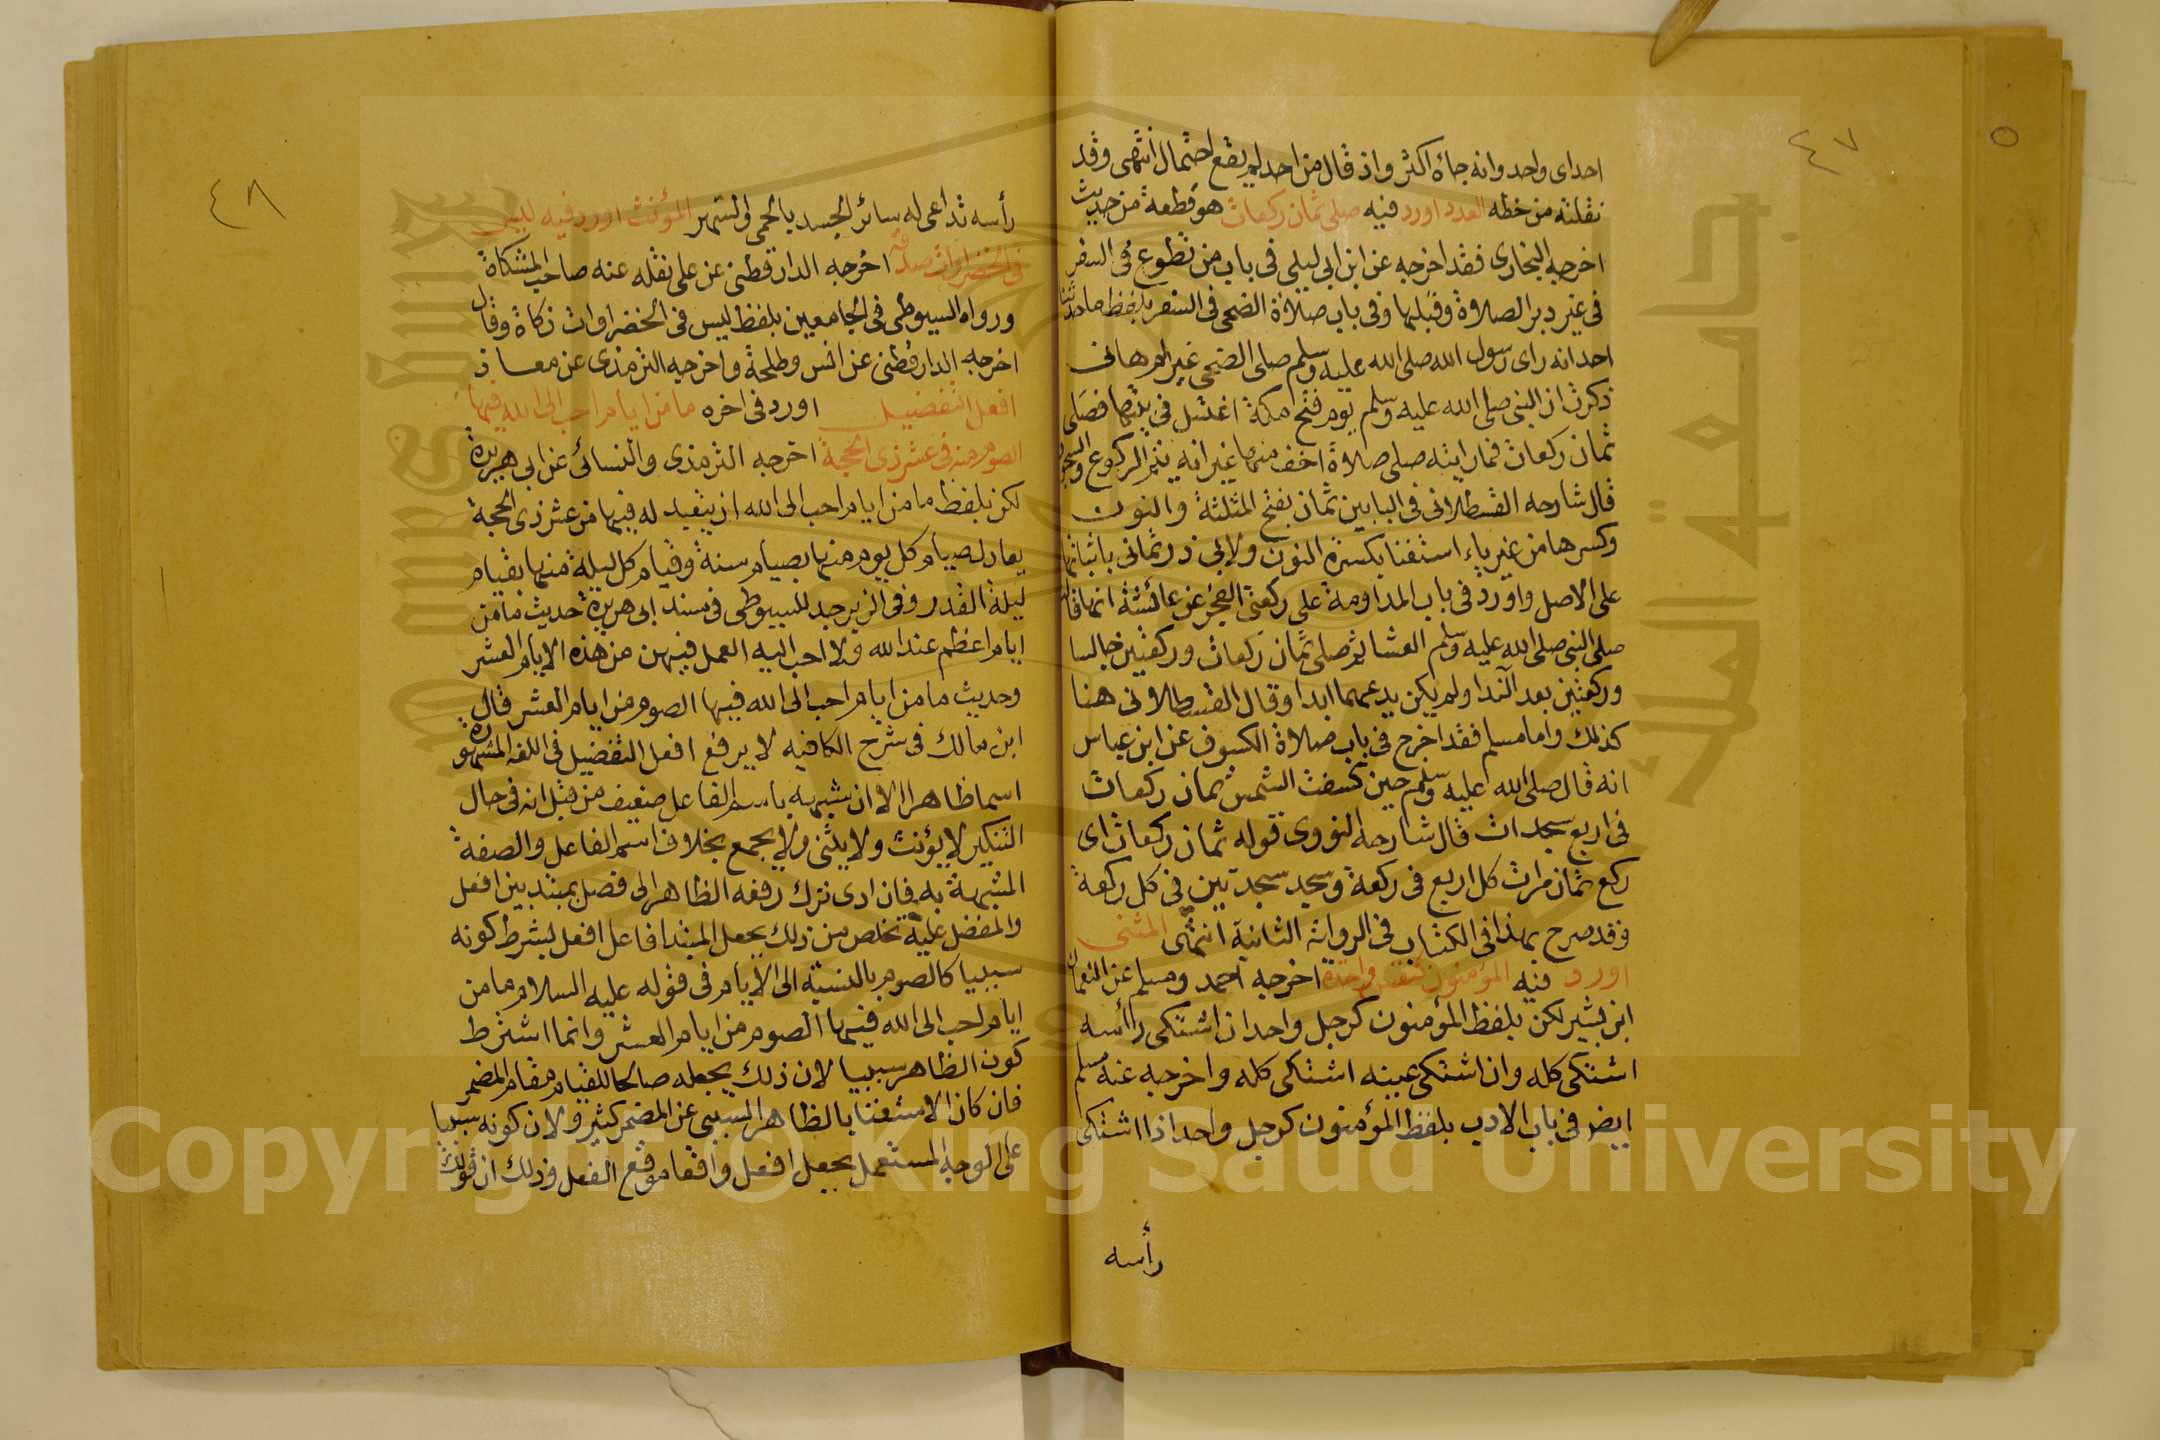 ٤٧
احداى واحد وانه جاءه اكثر واذ قال من احد لم يقع احتمال انتهى وقد
نقلته من خطه العدد اورد فيه صلى ثمان ركعات هو قطعة من حديث
اخرجه البخارى فقد اخرجه عن ابن ابى ليلى فى باب من تطوع فى السفر
فى غير دبر الصلاة وقبلها وفى باب صلاة الضحى فى السفر بلفظ ما حدثنا
احد انه راى رسول الله صلى الله عليه وسلم صلى الضحى غير ام هانى
ذكرت ان النبى صلى الله عليه وسلم يوم فتح مكة اغتسل فى بيتها فصلى
ثمان ركعات فما رايته صلى صلاة اخف منها غير انه يتم الركوع والسجود
قال شارحه القسطلانى فى البابين ثمان بفتح المثلثة والنون
وكسرها من غير ياء استغنا بكسرة النون ولابى ذر ثمانى باثباتها
على الاصل واورد فى باب المداومة على ركعتى الفجر عن عائشة انها قالت
صلى النبى صلى الله عليه وسلم العشا ثم صلى ثمان ركعات وركعتين جالسا
وركعتين بعد الندا ولم يكن يدعهما ابدا وقال القسطلانى هنا
كذلك واما مسلم فقد اخرج فى باب صلاة الكسوف عن ابن عباس
انه قال صلى الله عليه وسلم حين كسفت الشمس ثمان ركعات
فى اربع سجدات قال شارحه النووى قوله ثمان ركعات اى
ركع ثمان مرات كل اربع فى ركعة وسجد سجدتين فى كل ركعة
وقد صرح بهذا فى الكتاب فى الرواية الثانية انتهى المثنى
اورد فيه المؤمنون كنفس واحدة اخرجه احمد ومسلم عن النعمان
ابن بشير لكن بلفظ المؤمنون كرجل واحد ان اشتكى رأسه
اشتكى كله وان اشتكى عينه اشتكى كله واخرجه عنه مسلم
ايضا فى باب الادب بلفظ المؤمنون كرجل واحد اذا اشتكى
رأسه
٤٨
رأسه تداعى له سائر الجسد بالحمى والسهر المؤنث اورد فيه ليس
فى الخضراوات صدقة اخرجه الدارقطنى عن على نقله عنه صاحب المشكاة
ورواه السيوطى فى الجامعين بلفظ ليس فى الخضراوات زكاة وقال
اخرجه الدارقطنى عن انس وطلحة واخرجه الترمذى عن معاذ
افعل التفضيل اورد فى اخره ما من ايام احب الى الله فيها
الصوم منه فى عشر ذى الحجة اخرجه الترمذى والنسائى عن ابى هريرة
لكن بلفظ ما من ايام احب الى الله ان يتعبد له فيها من عشر ذى الحجة
يعادل صيام كل يوم منها بصيام سنة وقيام كل ليلة منها بقيام
ليلة القدر وفى الزبرجد للسيوطى فى مسند ابى هريرة حديث ما من
ايام اعظم عند الله ولا احب اليه العمل فيهن من هذه الايام العشر
وحديث ما من ايام احب الى الله فيها الصوم من ايام العشر قال
ابن مالك فى شرح الكافيه لا يرفع افعل التفضيل فى اللغة المشهورة
اسما ظاهرا الا ان شبهه باسم الفاعل ضعيف من قبل انه فى حال
التنكير لا يؤنث ولا يثنى ولا يجمع بخلاف اسم الفاعل والصفة
المشبهة به فان ادى ترك رفعه الظاهر الى فصل بمبتد بين افعل
والمفضل عليه تخلص من ذلك بجعل المبتدا فاعل افعل بشرط كونه
سببيا كالصوم بالنسبة الى الايام فى قوله عليه السلام ما من
ايام احب الى الله فيها الصوم من ايام العشر وانما اشترط
كون الظاهر سببيا لان ذلك يجعله صالحا للقيام مقام المضمر
فان كان الاستغنا بالظاهر السببى عن المضمر كثير ولان كونه سببيا
على الوجه المستعمل يجعل افعل واقعا موقع الفعل وذلك ان قولك
جامعة الملك سعود
King Saud University
Copyright © King Saud University